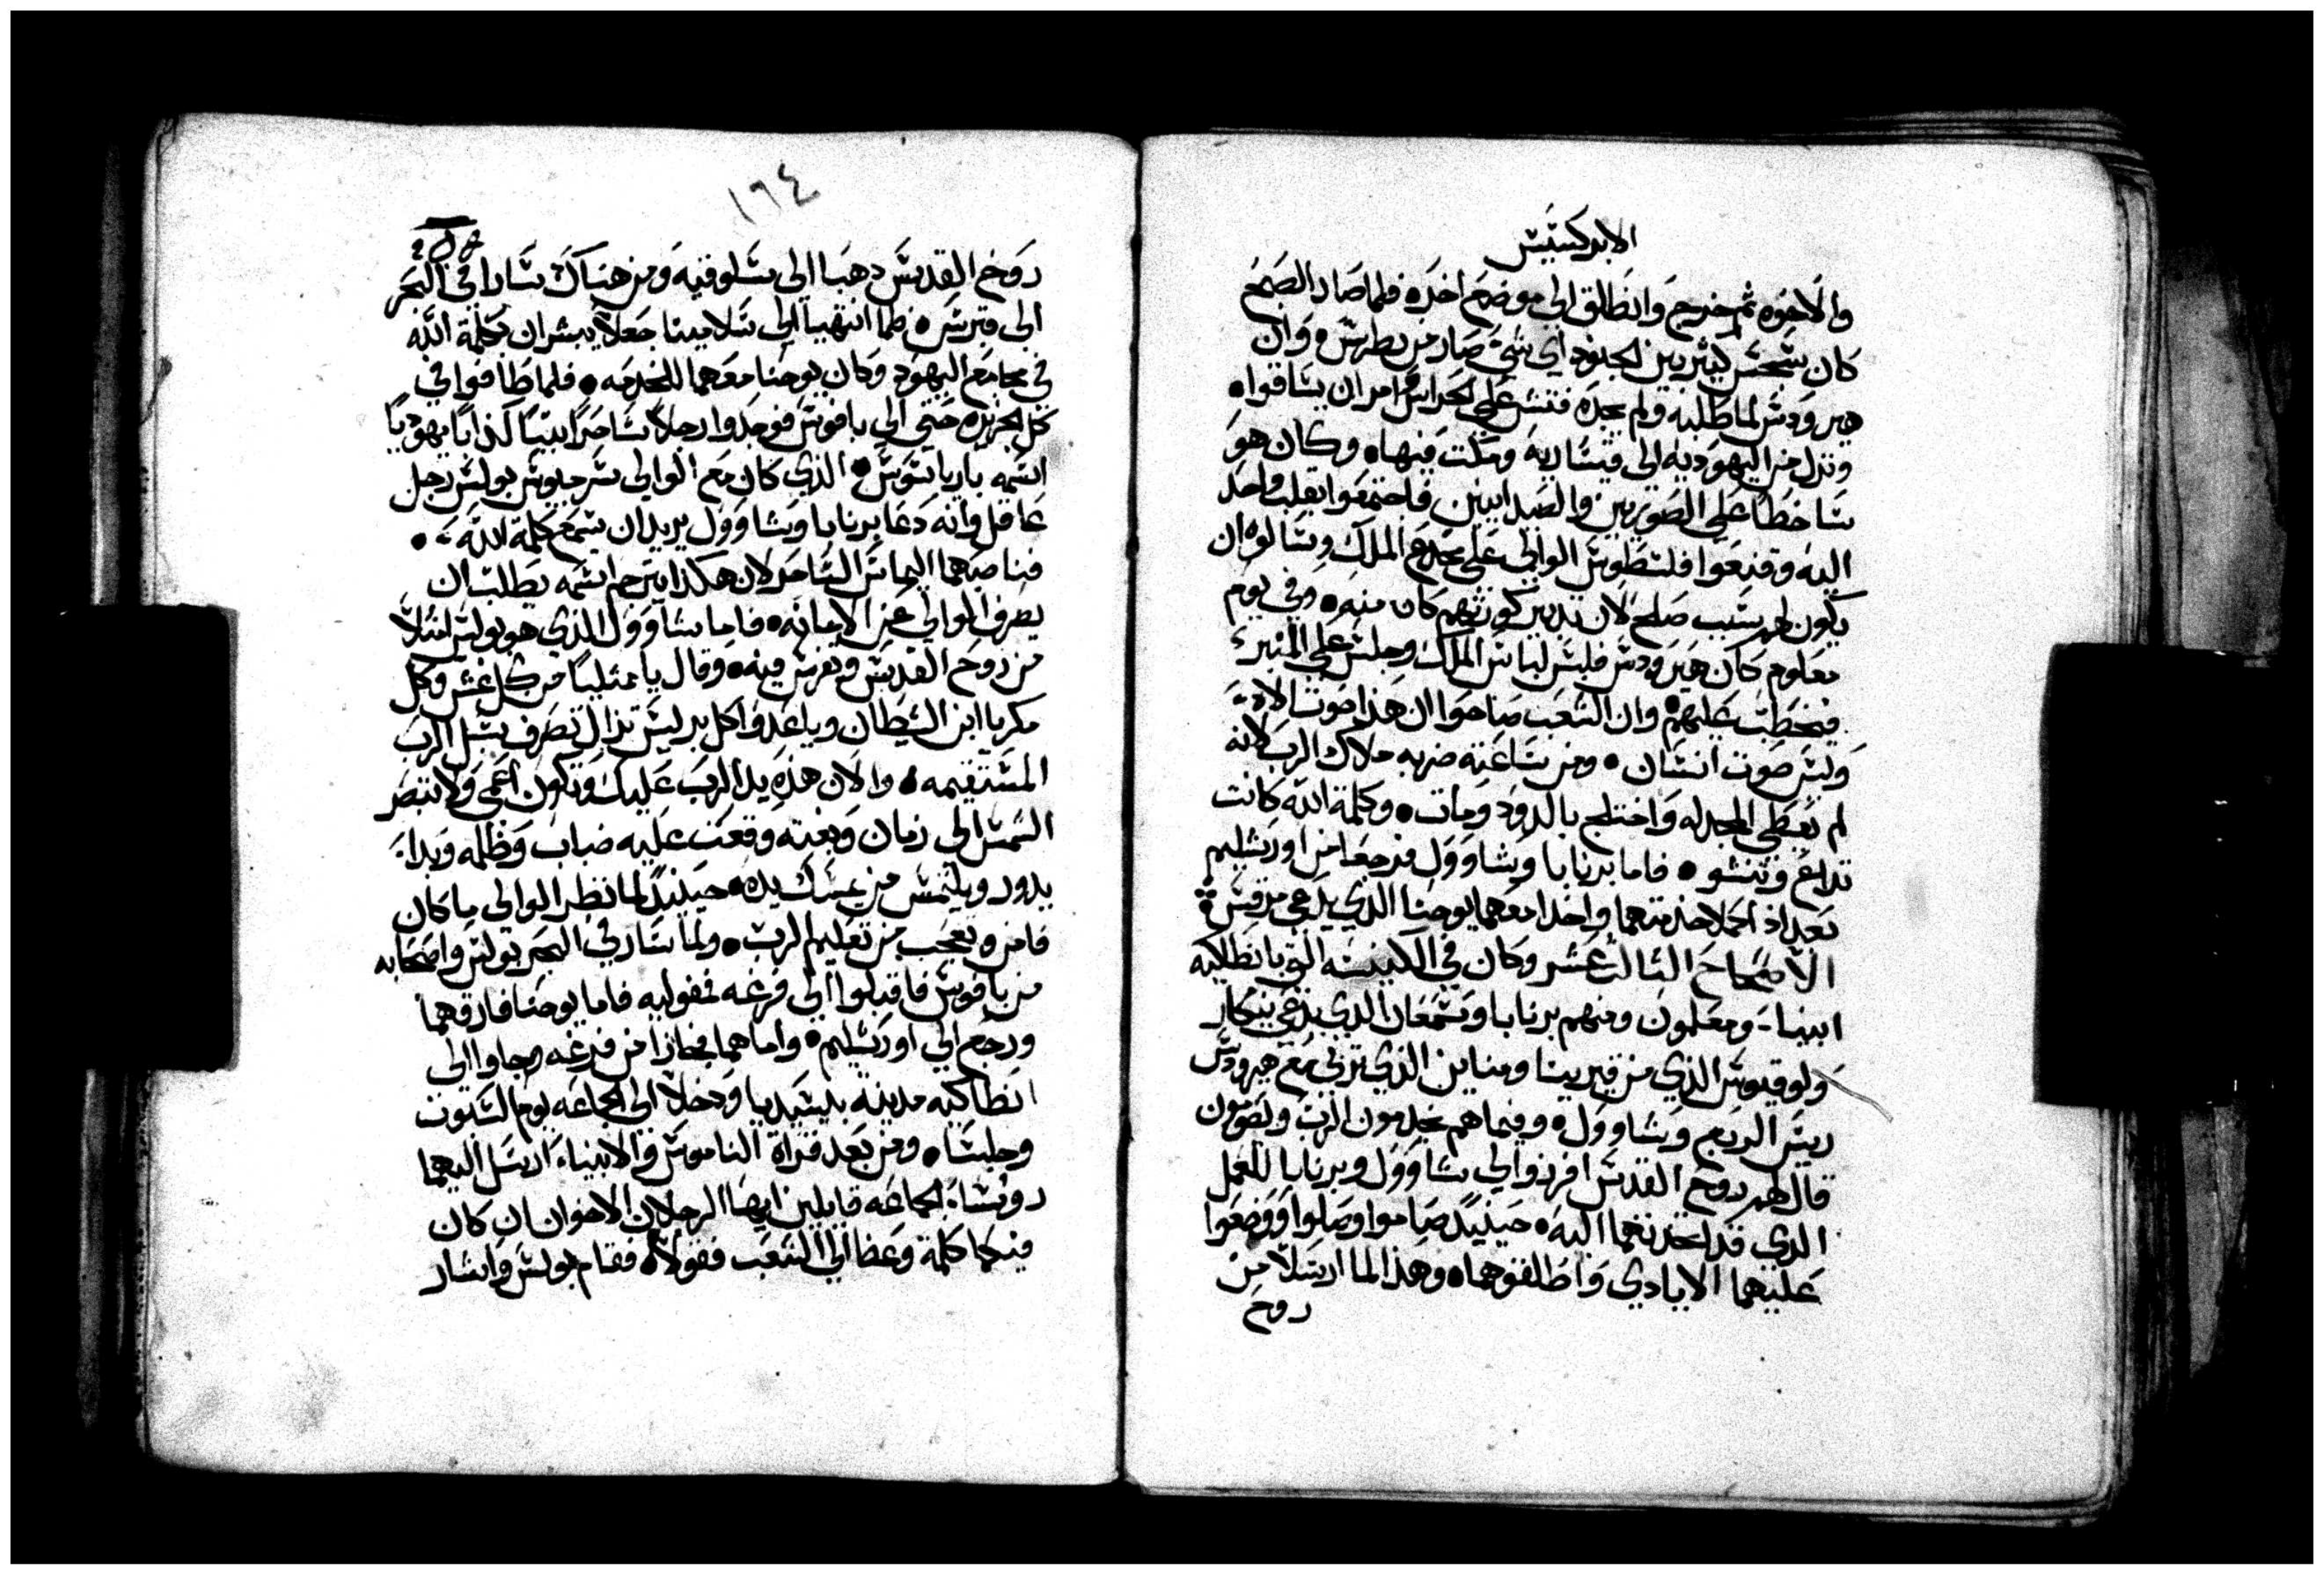 الابركسيس
والاخوه ثم خرج وانطلق الى موضع اخره فلما صار الصبح
كان سجس كثير بين الجنود اي شي صار من بطرس وان
هيرودس لما طلبه ولم يجده فتش على الحراس وامر ان يساقوا
ونزل من اليهوديه الى قيساريه ومكت فيها وكان هو
ساخطا على الصوريين والصيدانيين فاجتمعوا بقلب واحد
اليه وقنعوا فلسطوس الوالي على مخدع الملك وسالوه ان
يكون لهم سبب صلح لان تدبير كورتهم كان منه وفي يوم
معلوم كان هيرودس فلبس لباس الملك وجلس على المنبر
فيخطب عليهم وان الشعب صاحوا ان هذا صوت الاه
وليس صوت انسان ومن ساعته ضربه ملاك الرب لانه
لم يعطي المجد له واختلج بالدود ومات وكلمة الله كانت
تداع وتنشو فاما برنابا وشاوول فرجعا من اورشليم
بعد اذ اكملا خدمتهما واخدا معهما يوحنا الدي يدعى مرقس
الاصحاح التالت عشر وكان في الكنيسه التي بانطاكيه
انبيا ومعلمون ومنهم برنابا وسمعان الدي يدعى نيكار
ولوقيوس الذي من قيرينا ومناين الذي تربى مع هيرودس
ريس الربع وشاوول وفيما هم يخدمون الرب ويصومون
قال لهم روح القدس افرزوا لي شاوول وبرنابا للعمل
الدي قد اتخدتهما اليه حينيد صاموا وصلوا ووضعوا
عليهما الايادي واطلقوهما وهذا لما ارسلا من
روح
١٦٤
روح القدس دهبا الى سلوقيه ومن هناك سارا في البحر
الى قبرس فلما انتهيا الى سلامينا جعلا يبشران بكلمة الله
في مجامع اليهود وكان يوحنا معهما للخدمه فلما طافوا في
كل الجزيره حتى الى بافوس فوجدوا رجلا ساحرا نبيا كذابا يهوديا
اسمه باريا سوس الذي كان مع الوالي سرجيوس بولس رجل
عاقل وانه دعا برنابا وشاوول يريد ان يسمع كلمة الله
فناصبهما اليماس الساحر لان هكذا يترجم اسمه يطلب ان
يصرف الوالي عن الامانه فاما شاوول الذي هو بولس امتلا
من روح القدس وتفرس فيه وقال يا ممتليا من كل غش وكل
مكر يا ابن الشيطان ويا عدوا كل بر ليس تزال تصرف سبل الرب
المستقيمه والان هذه يد الرب عليك وتكون اعمى ولا تبصر
الشمس الى زمان وبغته وقعت عليه ضباب وظلمه وبدا
يدور ويلتمس من يمسك يده حينيد لما نظر الوالي ما كان
فامن وتعجب من تعليم الرب ولما سار في البحر بولس واصحابه
من بافوس فاقبلوا الى فرغه بمفوليه فاما يوحنا فارقهما
ورجع الى اورشليم واما هما فجازا من فرغه وجاوا الى
انطاكيه مدينه بليسيديا ودخلا الى الجماعه يوم السبوت
وجلسا ومن بعد قراة الناموس والانبيا ارسل اليهما
روسا الجماعه قايلين ايها الرجلان الاخوان ان كان
فيكما كلمة وعظا الى الشعب فقولا فقام بولس واشار